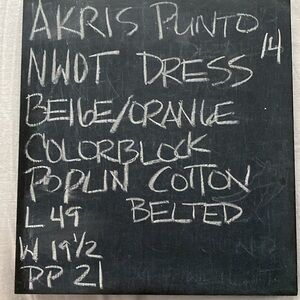 AKRIS PUNTO
NWOT DRESS 14
BEIGE/ORANGE
COLORBLOCK
POPLIN COTTON
L 49 BELTED
W 19½
PP 21